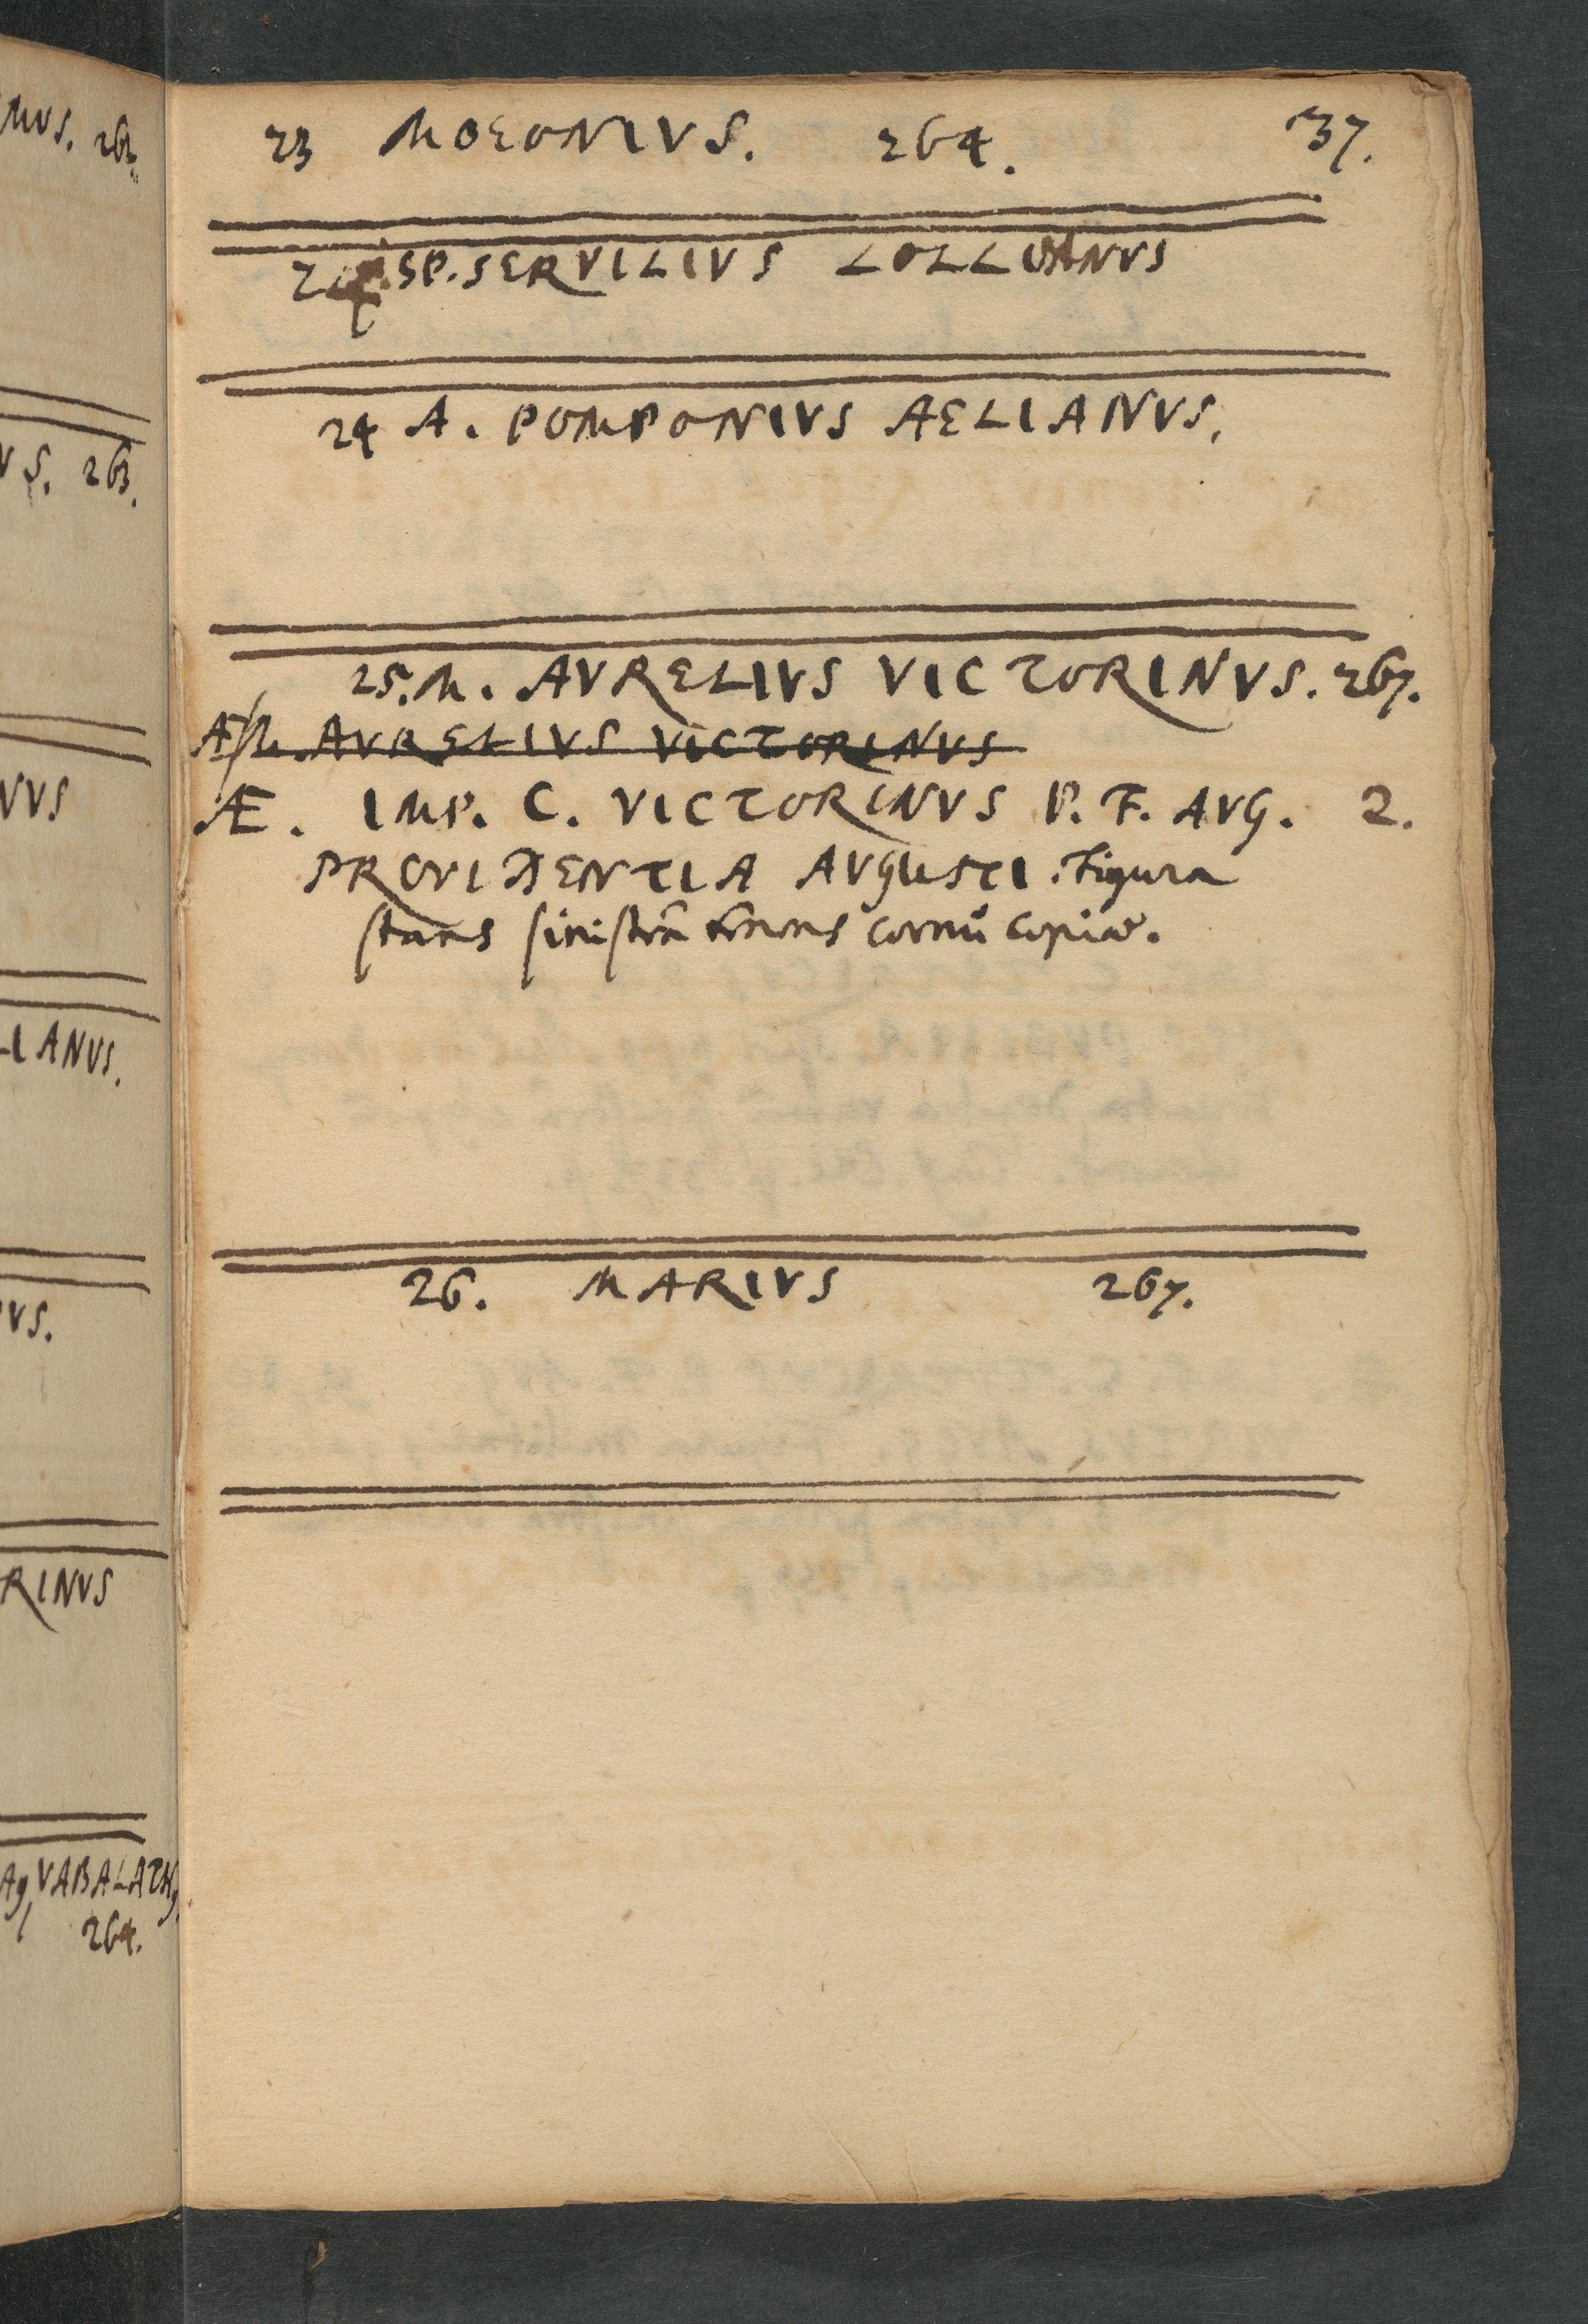 MVS. 263.
VS. 263.
NVS
LIANVS.
VS.
RINVS
VABALATH
264.
23 MOEONIVS. 264. 37.
SP. SERVILIVS LOLLIANVS
24 A. POMPONIVS AELIANVS.
25. M. AVRELIVS VICTORINVS. 267.
Æ M. AVRELIVS VICTORINVS
Æ. IMP. C. VICTORINVS P. F. AVG. 2.
PROVIDENTIA AVGUSTI. Figura
stans sinistrâ tenens cornu copiæ.
26. MARIVS 267.